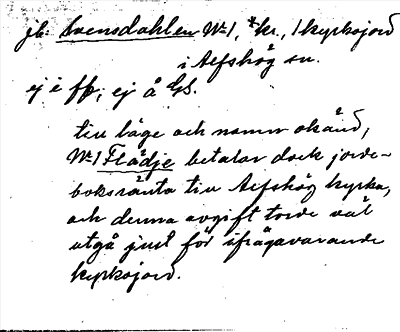 jb: Svensdahlen No 1, *kr., 1 kyrkojord
i Refshög sn.
ej i ffb; ej å GS.
till läge och namn okänd,
No 1 Flädje betalar dock jorde-
boksränta till Refshög kyrka,
och denna avgift torde väl
utgå just för ifrågavarande
kyrkojord.